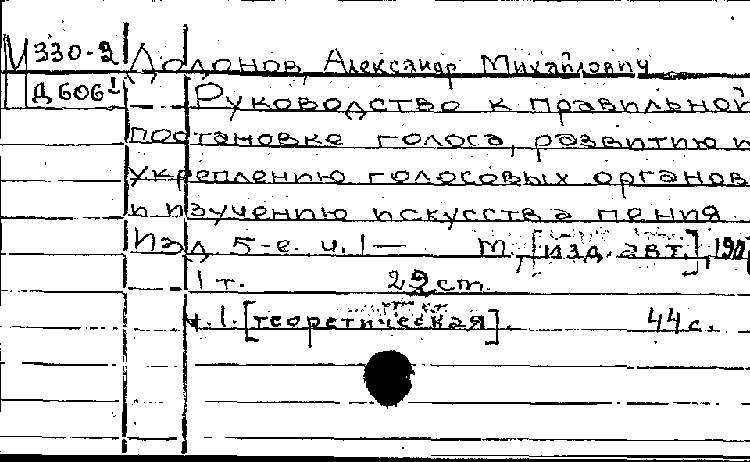 И 330-2 Додонов, Александр Михайлович
Д 606¹ Руководство к правильной
постановке голоса, развитию и
укреплению голосовых органов
и изучению искусства пения.
Изд. 5-е. ч. 1— М., [изд. авт.], 190
1 т. 29 см.
ч. 1. [теоретическая]. 44 с.